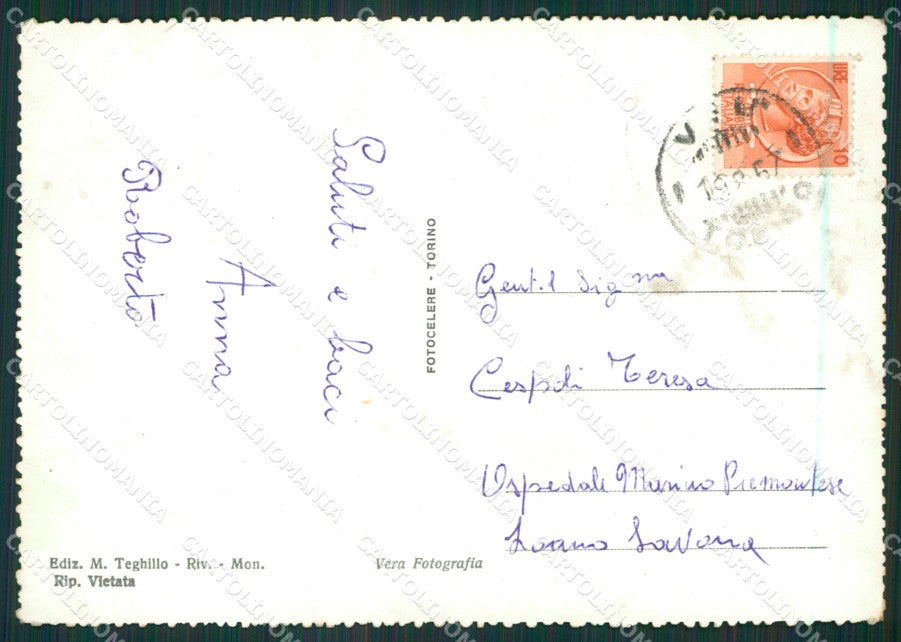 Saluti e baci
Anna
Roberto
FOTOCELERE - TORINO
Gent.l Sig.na
Teresa
Ospedale Marino Piemontese
Loano Savona
Ediz. M. Teghillo - Riv. - Mon.
Rip. Vietata
Vera Fotografia
LIRE 10
CARTOLINOMANIA